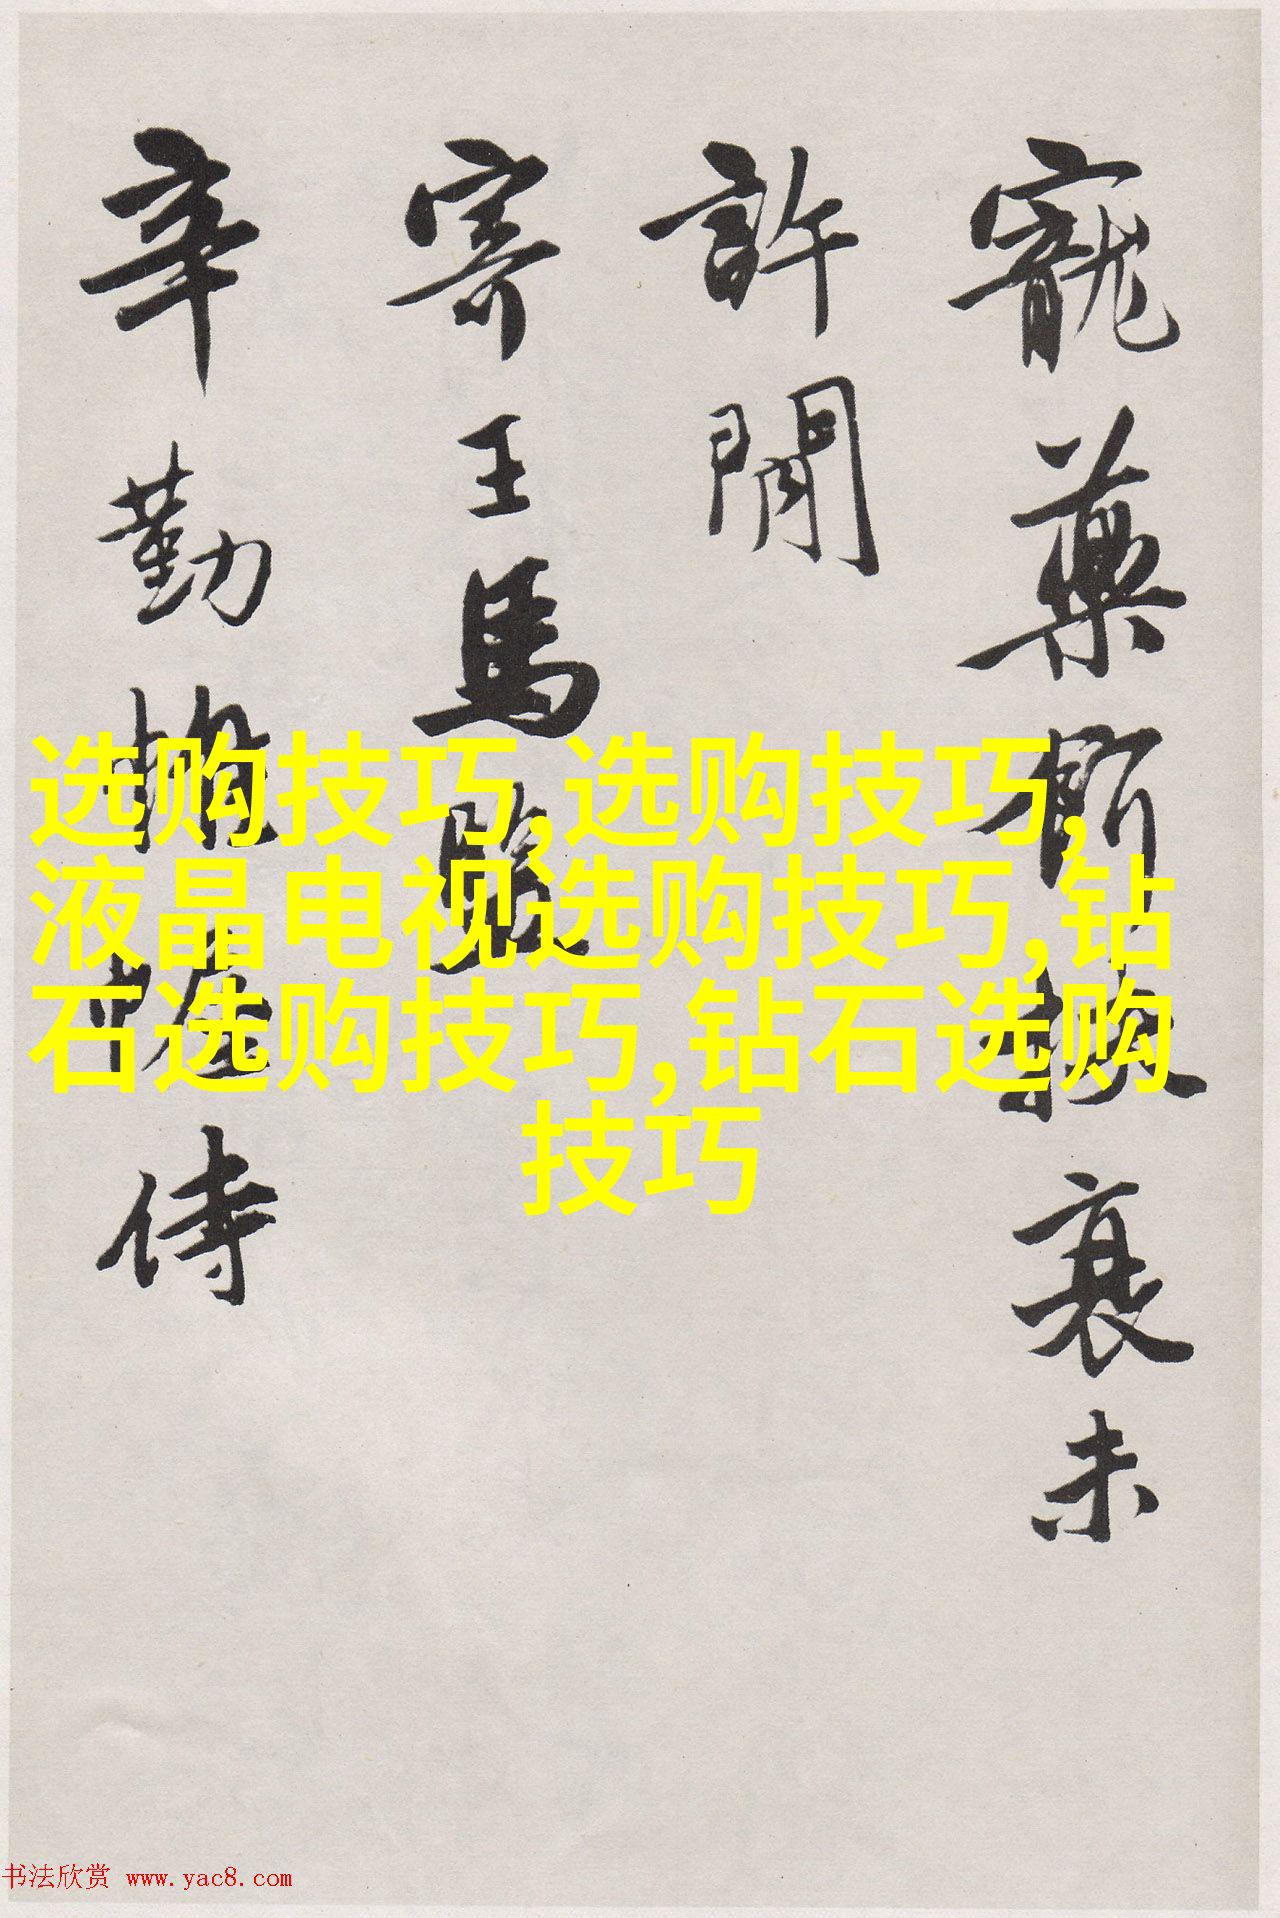 寵藥扶衰未
許閒
寄王馬
辛勤幄侍
选购技巧,选购技巧,
液晶电视选购技巧,钻
石选购技巧,钻石选购
技巧
书法欣赏 www.yac8.com